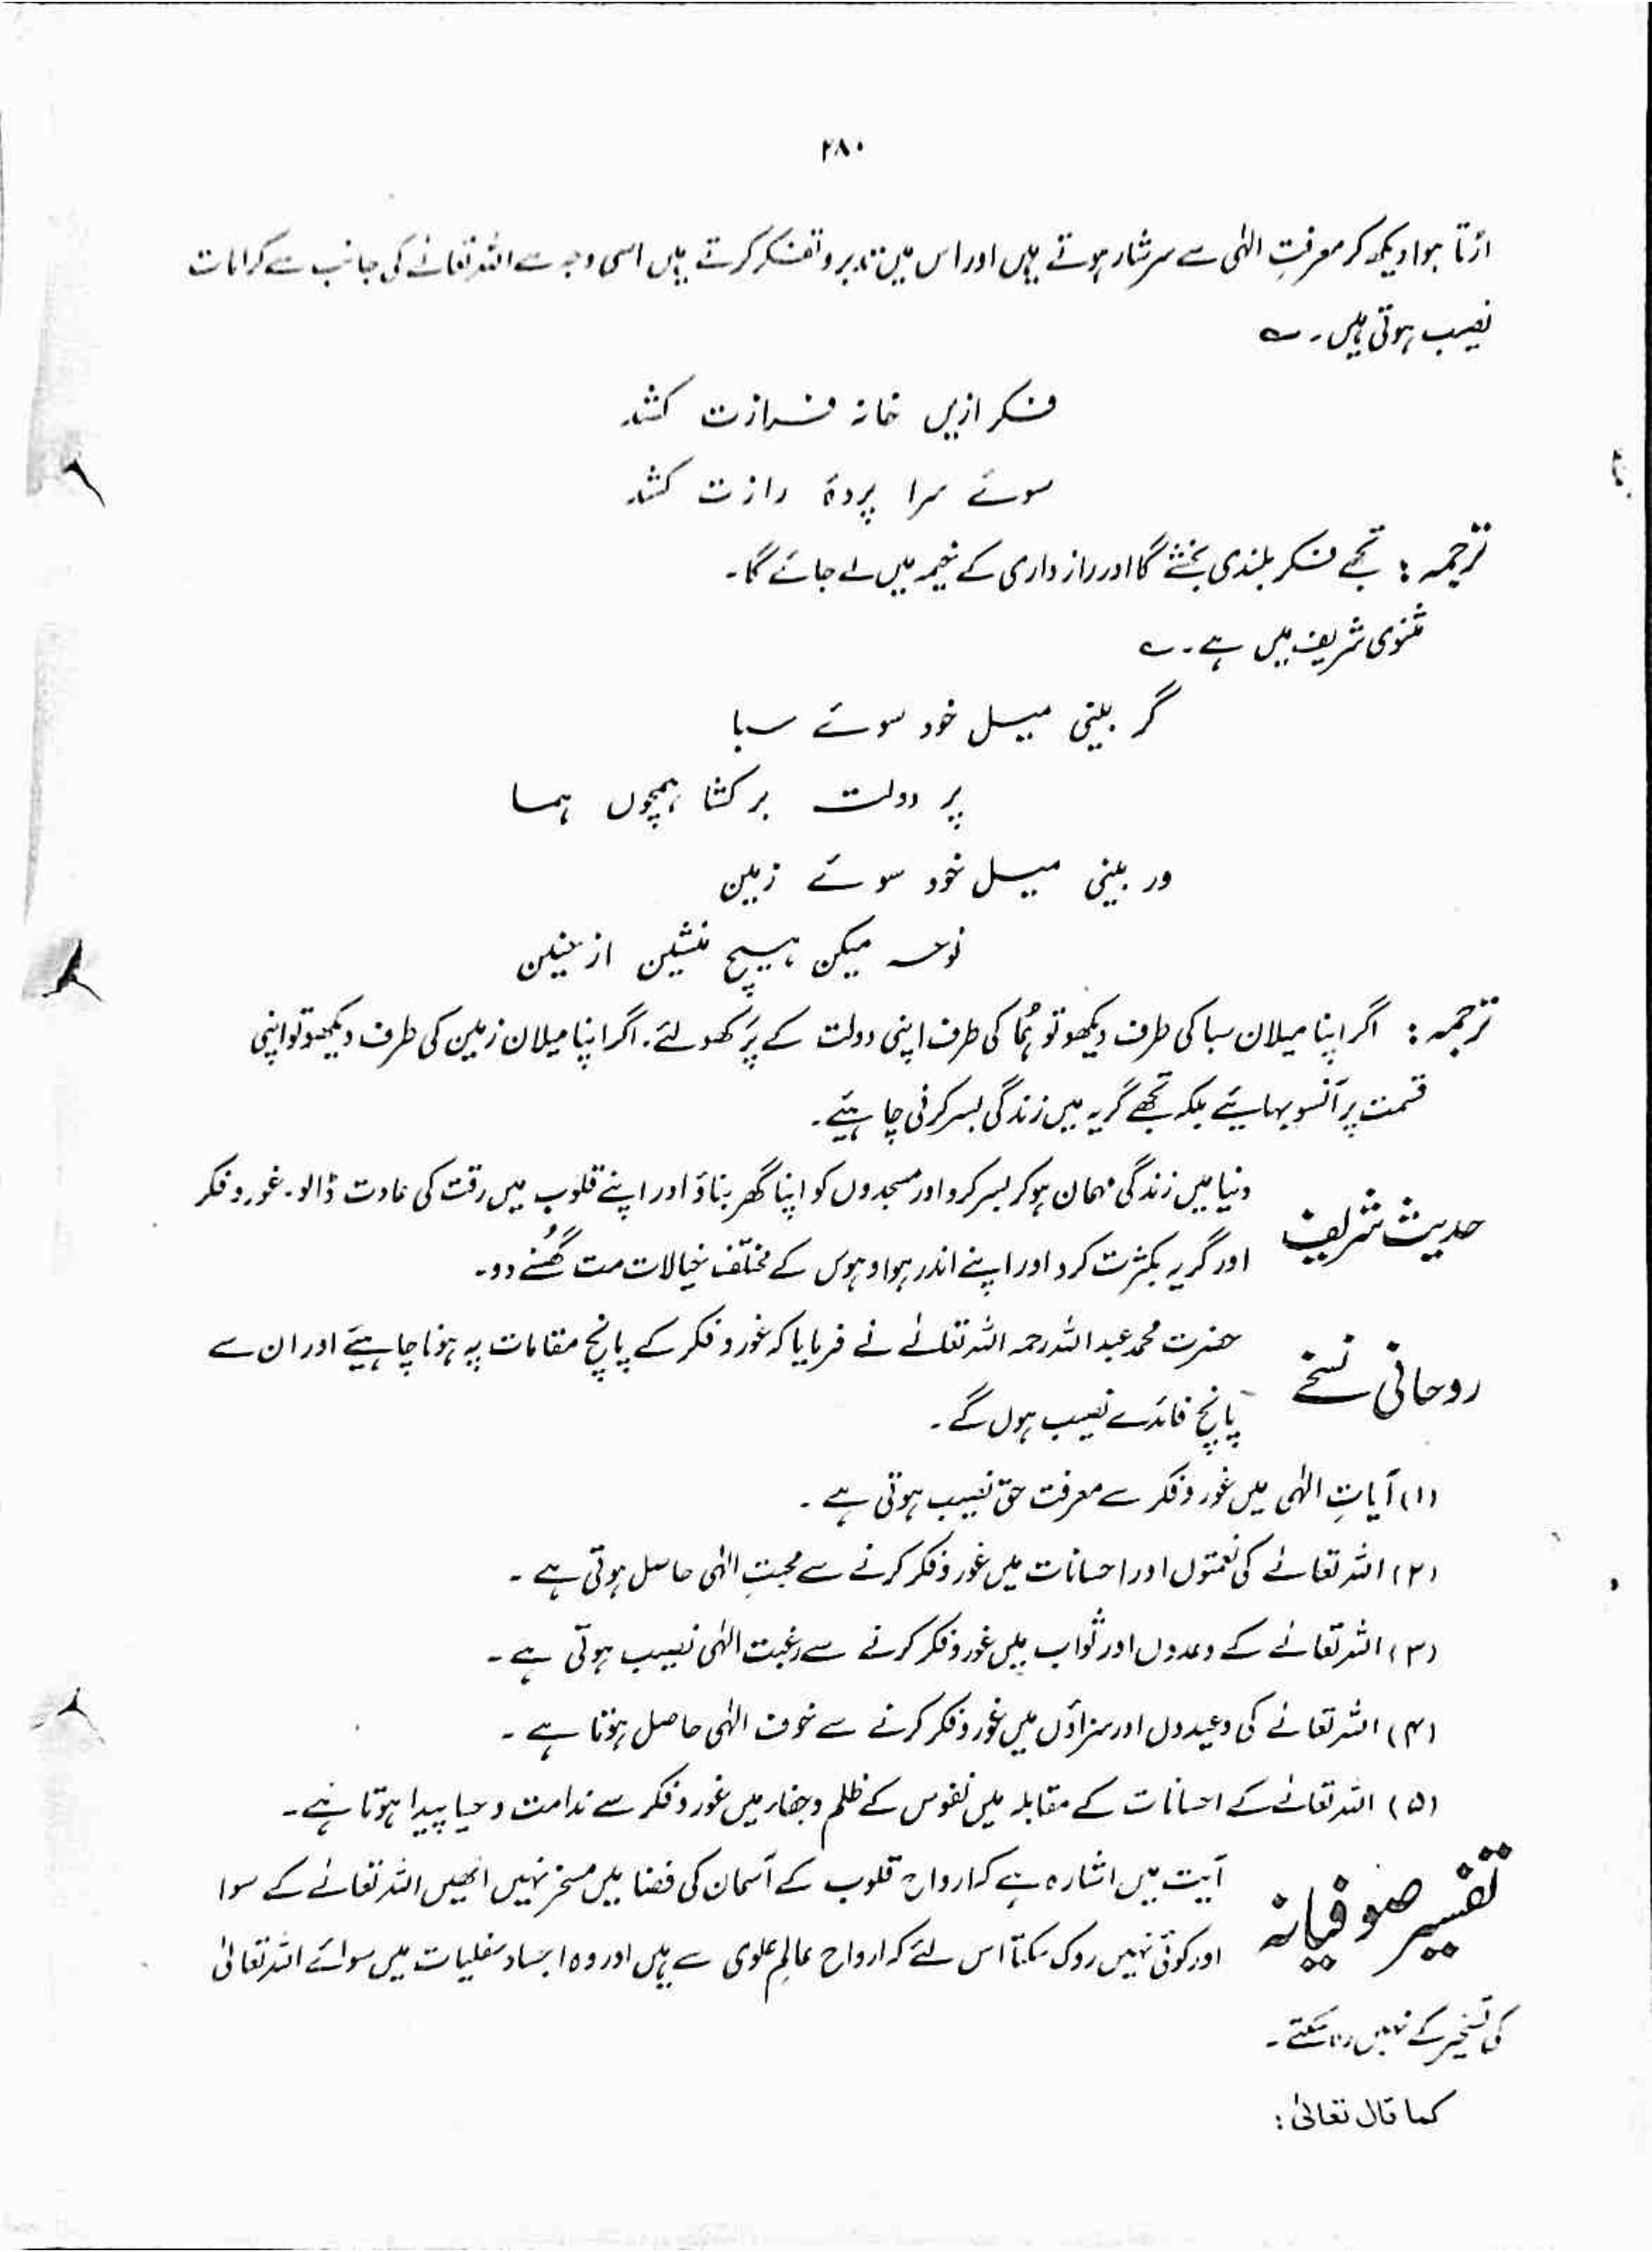 ۲۸۰
اڑتا ہوا دیکھ کر معرفتِ الٰہی سے سرشار ہوتے ہیں اور اس میں تدبر و تفکر کرتے ہیں اسی وجہ سے اللہ تعالےٰ کی جانب سے کرامات
نصیب ہوتی ہیں۔ ؎
فکر ازیں خانہ فرازت کشد
سوئے سرا پردۂ رازت کشد
ترجمہ: تجھے فکر بلندی بخشے گا اور راز داری کے خیمہ میں لے جائے گا۔
مثنوی شریف میں ہے۔ ؎
گر بینی میل خود سوئے سبا
پر دولت بر کشا ہمچوں ہما
ور بینی میل خود سوئے زمین
نوحہ میکن ہیچ منشین از حنین
ترجمہ: اگر اپنا میلان سبا کی طرف دیکھو تو ہُما کی طرف اپنی دولت کے پَر کھولئے۔ اگر اپنا میلان زمین کی طرف دیکھو تو اپنی
قسمت پر آنسو بہائیے بلکہ تجھے گریہ میں زندگی بسر کرنی چاہیئے۔
حدیث شریف دنیا میں زندگی مہمان ہو کر بسر کرو اور مسجدوں کو اپنا گھر بناؤ اور اپنے قلوب میں رقت کی عادت ڈالو۔ غور و فکر
اور گریہ بکثرت کرو اور اپنے اندر ہوا و ہوس کے مختلف خیالات مت گھُسنے دو۔
روحانی نسخے حضرت محمد عبد اللہ رحمہ اللہ تعالےٰ نے فرمایا کہ غور و فکر کے پانچ مقامات پہ ہونا چاہیئے اور ان سے
پانچ فائدے نصیب ہوں گے۔
(۱) آیاتِ الٰہی میں غور و فکر سے معرفت حق نصیب ہوتی ہے۔
(۲) اللہ تعالےٰ کی نعمتوں اور احسانات میں غور و فکر کرنے سے محبتِ الٰہی حاصل ہوتی ہے۔
(۳) اللہ تعالےٰ کے وعدوں اور ثواب میں غور و فکر کرنے سے رغبت الٰہی نصیب ہوتی ہے۔
(۴) اللہ تعالےٰ کی وعیدوں اور سزاؤں میں غور و فکر کرنے سے خوف الٰہی حاصل ہوتا ہے۔
(۵) اللہ تعالےٰ کے احسانات کے مقابلہ میں نفوس کے ظلم و جفار میں غور و فکر سے ندامت و حیا پیدا ہوتا ہے۔
تفسیر صوفیانہ آیت میں اشارہ ہے کہ ارواح قلوب کے آسمان کی فضا میں مسخر نہیں انھیں اللہ تعالےٰ کے سوا
اور کوئی نہیں روک سکتا اس لئے کہ ارواح عالمِ علوی سے ہیں اور وہ اجساد سفلیات میں سوائے اللہ تعالیٰ
کی تسخیر کے نہیں رہ سکتے۔
کما قال تعالیٰ: